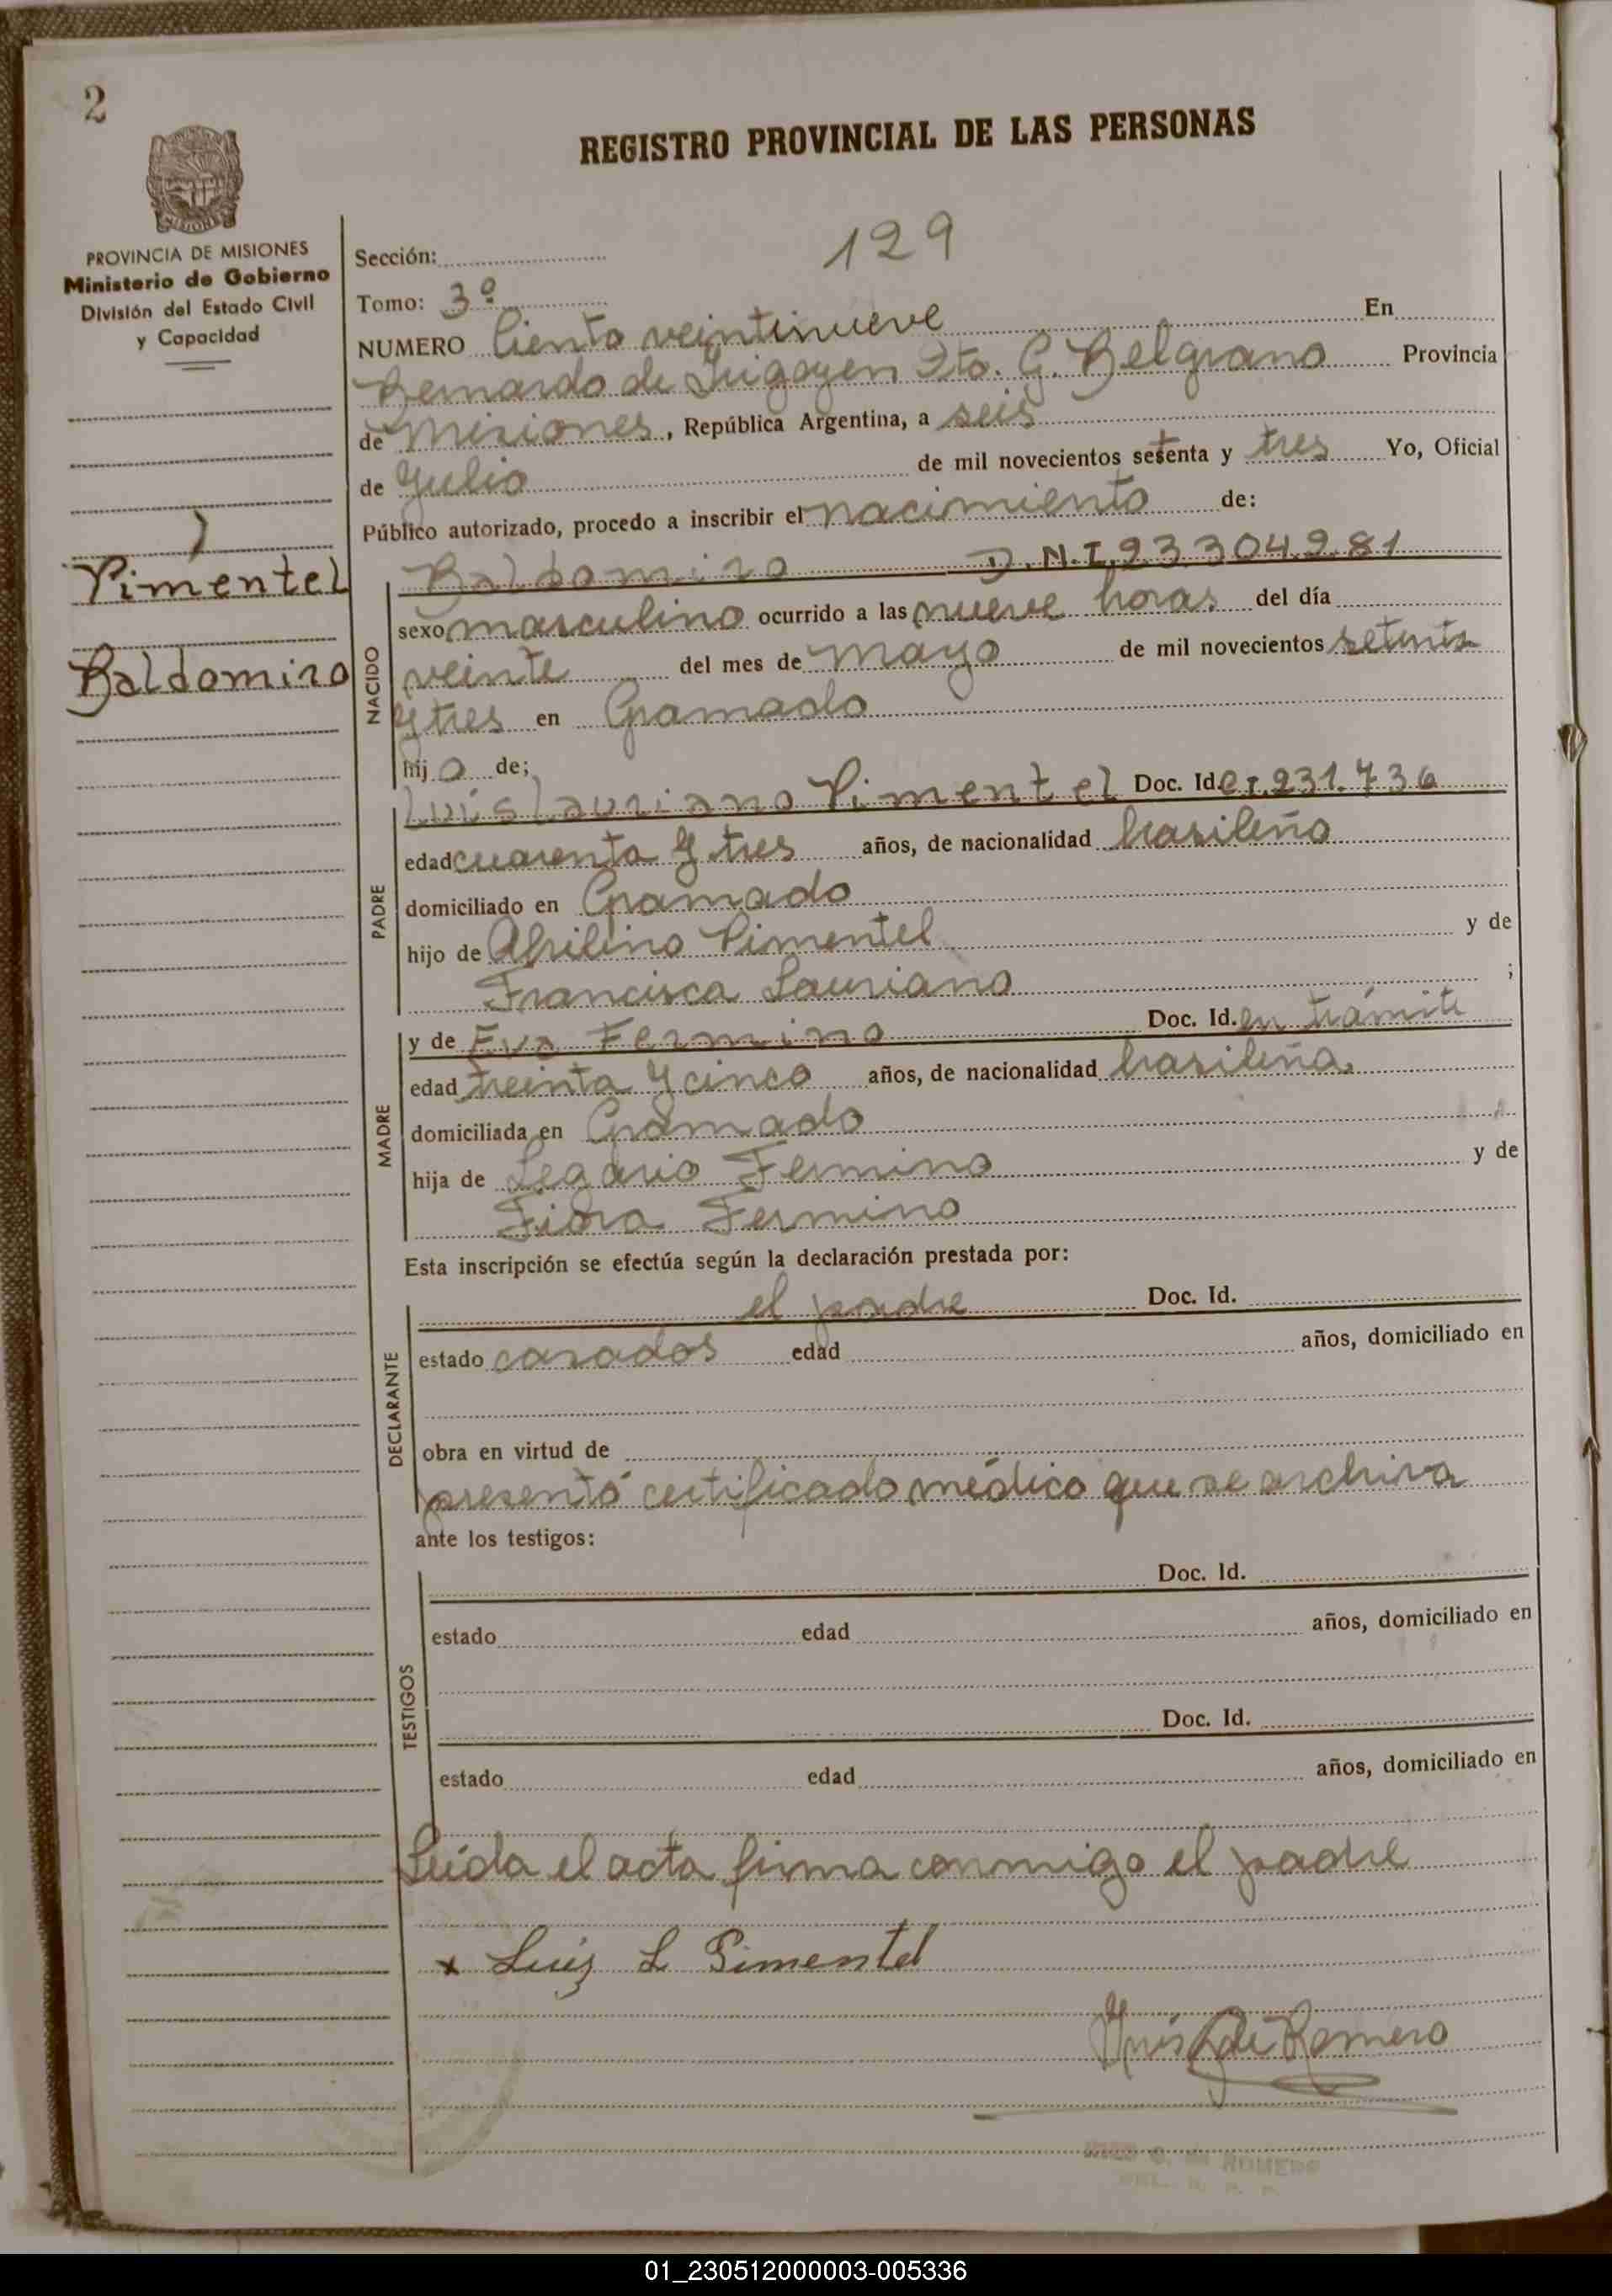 2
REGISTRO PROVINCIAL DE LAS PERSONAS
MISIONES
PROVINCIA DE MISIONES
Ministerio de Gobierno
División del Estado Civil
y Capacidad
Pimentel
Baldomiro
129
Sección:
Tomo: 3º
NUMERO Ciento veintinueve En
Bernardo de Irigoyen Dto. G. Belgrano Provincia
de Misiones, República Argentina, a seis
de Julio de mil novecientos setenta y tres Yo, Oficial
Público autorizado, procedo a inscribir el nacimiento de:
NACIDO
Baldomiro D.N.I. 93304981
sexo masculino ocurrido a las nueve horas del día
veinte del mes de mayo de mil novecientos setenta
y tres en Gramado
hijo de;
PADRE
Luis Lauriano Pimentel Doc. Id. C.I. 231.736
edad cuarenta y tres años, de nacionalidad brasileño
domiciliado en Gramado
hijo de Abilino Pimentel y de
Francisca Lauriano ;
MADRE
y de Eva Fermino Doc. Id. en trámite
edad treinta y cinco años, de nacionalidad brasileña
domiciliada en Gramado
hija de Legario Fermino y de
Fiora Fermino
Esta inscripción se efectúa según la declaración prestada por:
DECLARANTE
el padre Doc. Id.
estado casados edad años, domiciliado en
obra en virtud de
presentó certificado médico que se archiva
ante los testigos:
TESTIGOS
Doc. Id.
estado edad años, domiciliado en
Doc. Id.
estado edad años, domiciliado en
Leída el acta firma conmigo el padre
x Luis L Pimentel
Romero
ROMERO
01_230512000003-005336